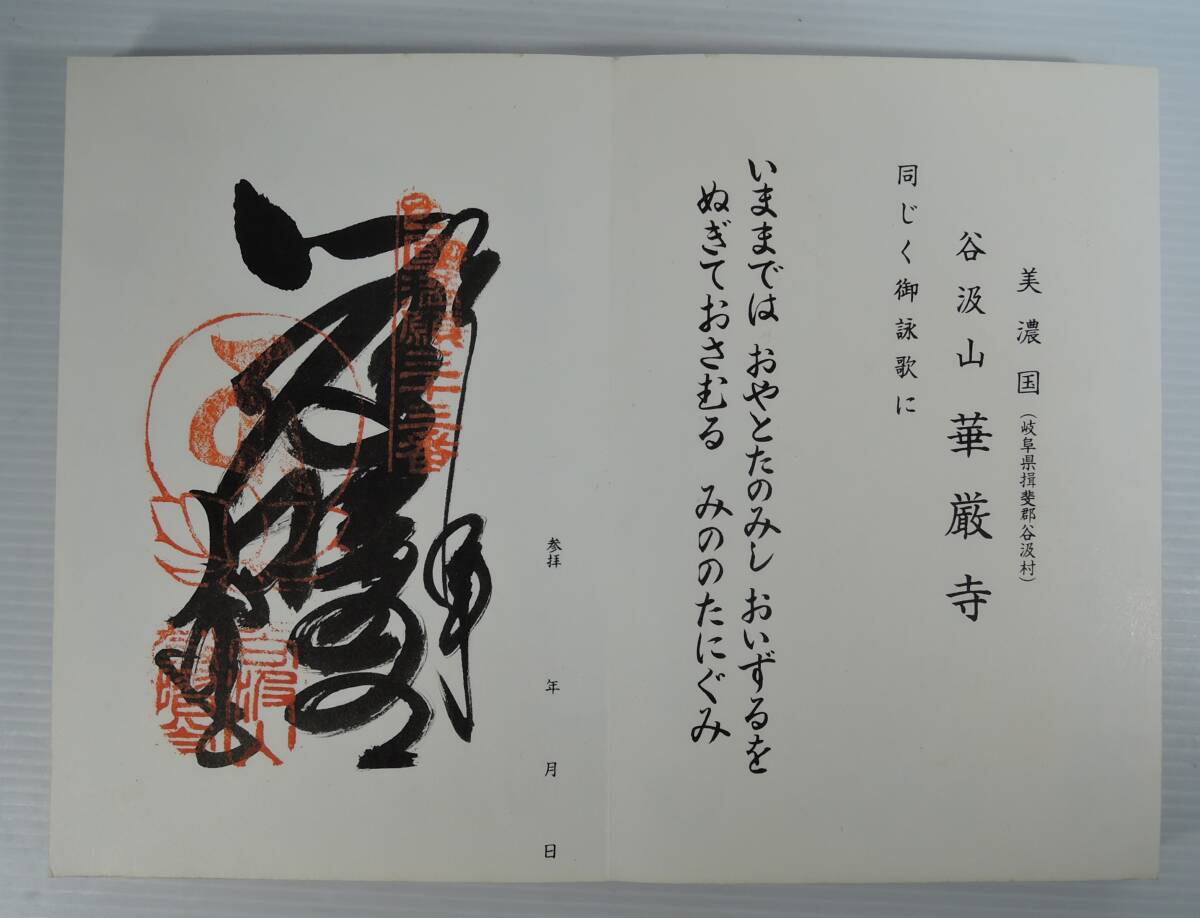 美濃国（岐阜県揖斐郡谷汲村）
谷汲山華厳寺
同じく御詠歌に
いままでは おやとたのみし おいずるを
ぬぎておさむる みののたにぐみ
参拝 年 月 日
西国満願三十三番
谷汲山
華厳寺